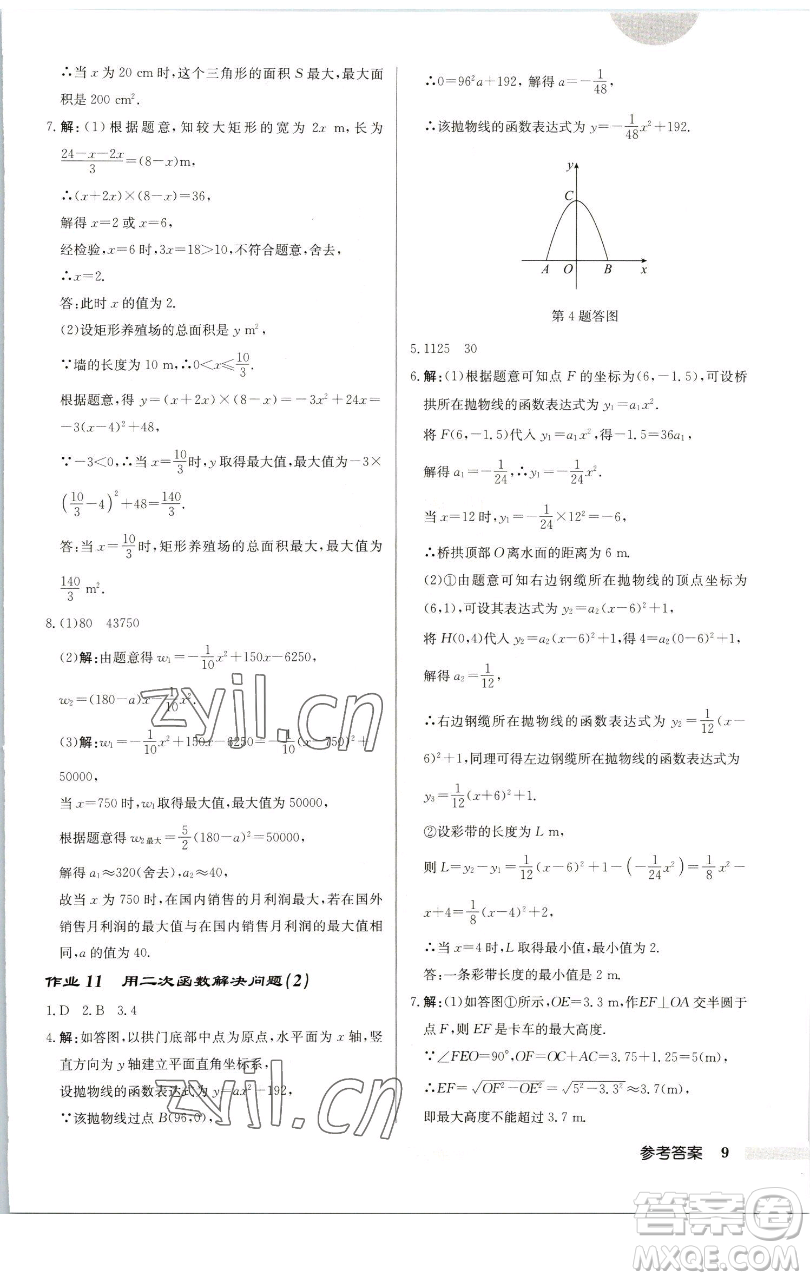 ∴当 x 为 20 cm 时,这个三角形的面积 S 最大,最大面
积是 200 cm².
7. 解:(1)根据题意,知较大矩形的宽为 2x m,长为
(24-x-2x)/3=(8-x)m,
∴(x+2x)×(8-x)=36,
解得 x=2 或 x=6,
经检验,x=6 时,3x=18>10,不符合题意,舍去,
∴x=2.
答:此时 x 的值为 2.
(2)设矩形养殖场的总面积是 y m²,
∵墙的长度为 10 m,∴0<x≤10/3.
根据题意,得 y=(x+2x)×(8-x)=-3x²+24x=
-3(x-4)²+48,
∵-3<0,∴当 x=10/3时,y 取得最大值,最大值为-3×
(10/3-4)²+48=140/3.
答:当 x=10/3时,矩形养殖场的总面积最大,最大值为
140/3 m².
8. (1)80 43750
(2)解:由题意得 w₁=-1/10x²+150x-6250,
w₂=(180-a)x-1/10x².
(3)解:w₁=-1/10x²+150x-6250=-1/10(x-750)²+
50000,
当 x=750 时,w₁取得最大值,最大值为 50000,
根据题意得 w₂最大=5/2(180-a)²=50000,
解得 a₁≈320(舍去),a₂=40.
故当 x 为 750 时,在国内销售的月利润最大,若在国外
销售月利润的最大值与在国内销售月利润的最大值相
同,a 的值为 40.
作业 11 用二次函数解决问题(2)
1. D 2. B 3. 4
4. 解:如答图,以拱门底部中点为原点,水平面为 x 轴,竖
直方向为 y 轴建立平面直角坐标系,
设抛物线的函数表达式为 y=ax²+192,
∵该抛物线过点 B(96,0),
∴0=96²a+192,解得 a=-1/48,
∴该抛物线的函数表达式为 y=-1/48x²+192.
y
C
A O B x
第 4 题答图
5. 1125 30
6. 解:(1)根据题意可知点 F 的坐标为(6,-1.5),可设桥
拱所在抛物线的函数表达式为 y₁=a₁x².
将 F(6,-1.5)代入 y₁=a₁x²,得-1.5=36a₁,
解得 a₁=-1/24,∴y₁=-1/24x².
当 x=12 时,y₁=-1/24×12²=-6,
∴桥拱顶部 O 离水面的距离为 6 m.
(2)①由题意可知右边钢缆所在抛物线的顶点坐标为
(6,1),可设其表达式为 y₂=a₂(x-6)²+1,
将 H(0,4)代入 y₂=a₂(x-6)²+1,得 4=a₂(0-6)²+1,
解得 a₂=1/12,
∴右边钢缆所在抛物线的函数表达式为 y₂=1/12(x-
6)²+1,同理可得左边钢缆所在抛物线的函数表达式为
y₃=1/12(x+6)²+1.
②设彩带的长度为 L m,
则 L=y₂-y₁=1/12(x-6)²+1-(-1/24x²)=1/8x²-
x+4=1/8(x-4)²+2,
∴当 x=4 时,L 取得最小值,最小值为 2,
答:一条彩带长度的最小值是 2 m.
7. 解:(1)如答图①所示,OE=3.3 m,作EF⊥OA 交半圆于
点 F,则 EF 是卡车的最大高度.
∵∠FEO=90°,OF=OC+AC=3.75+1.25=5(m),
∴EF=√(OF²-OE²)=√(5²-3.3²)≈3.7(m),
即最大高度不能超过 3.7 m.
参考答案 9
zyjl.cn
答案圈
MXQE.COM